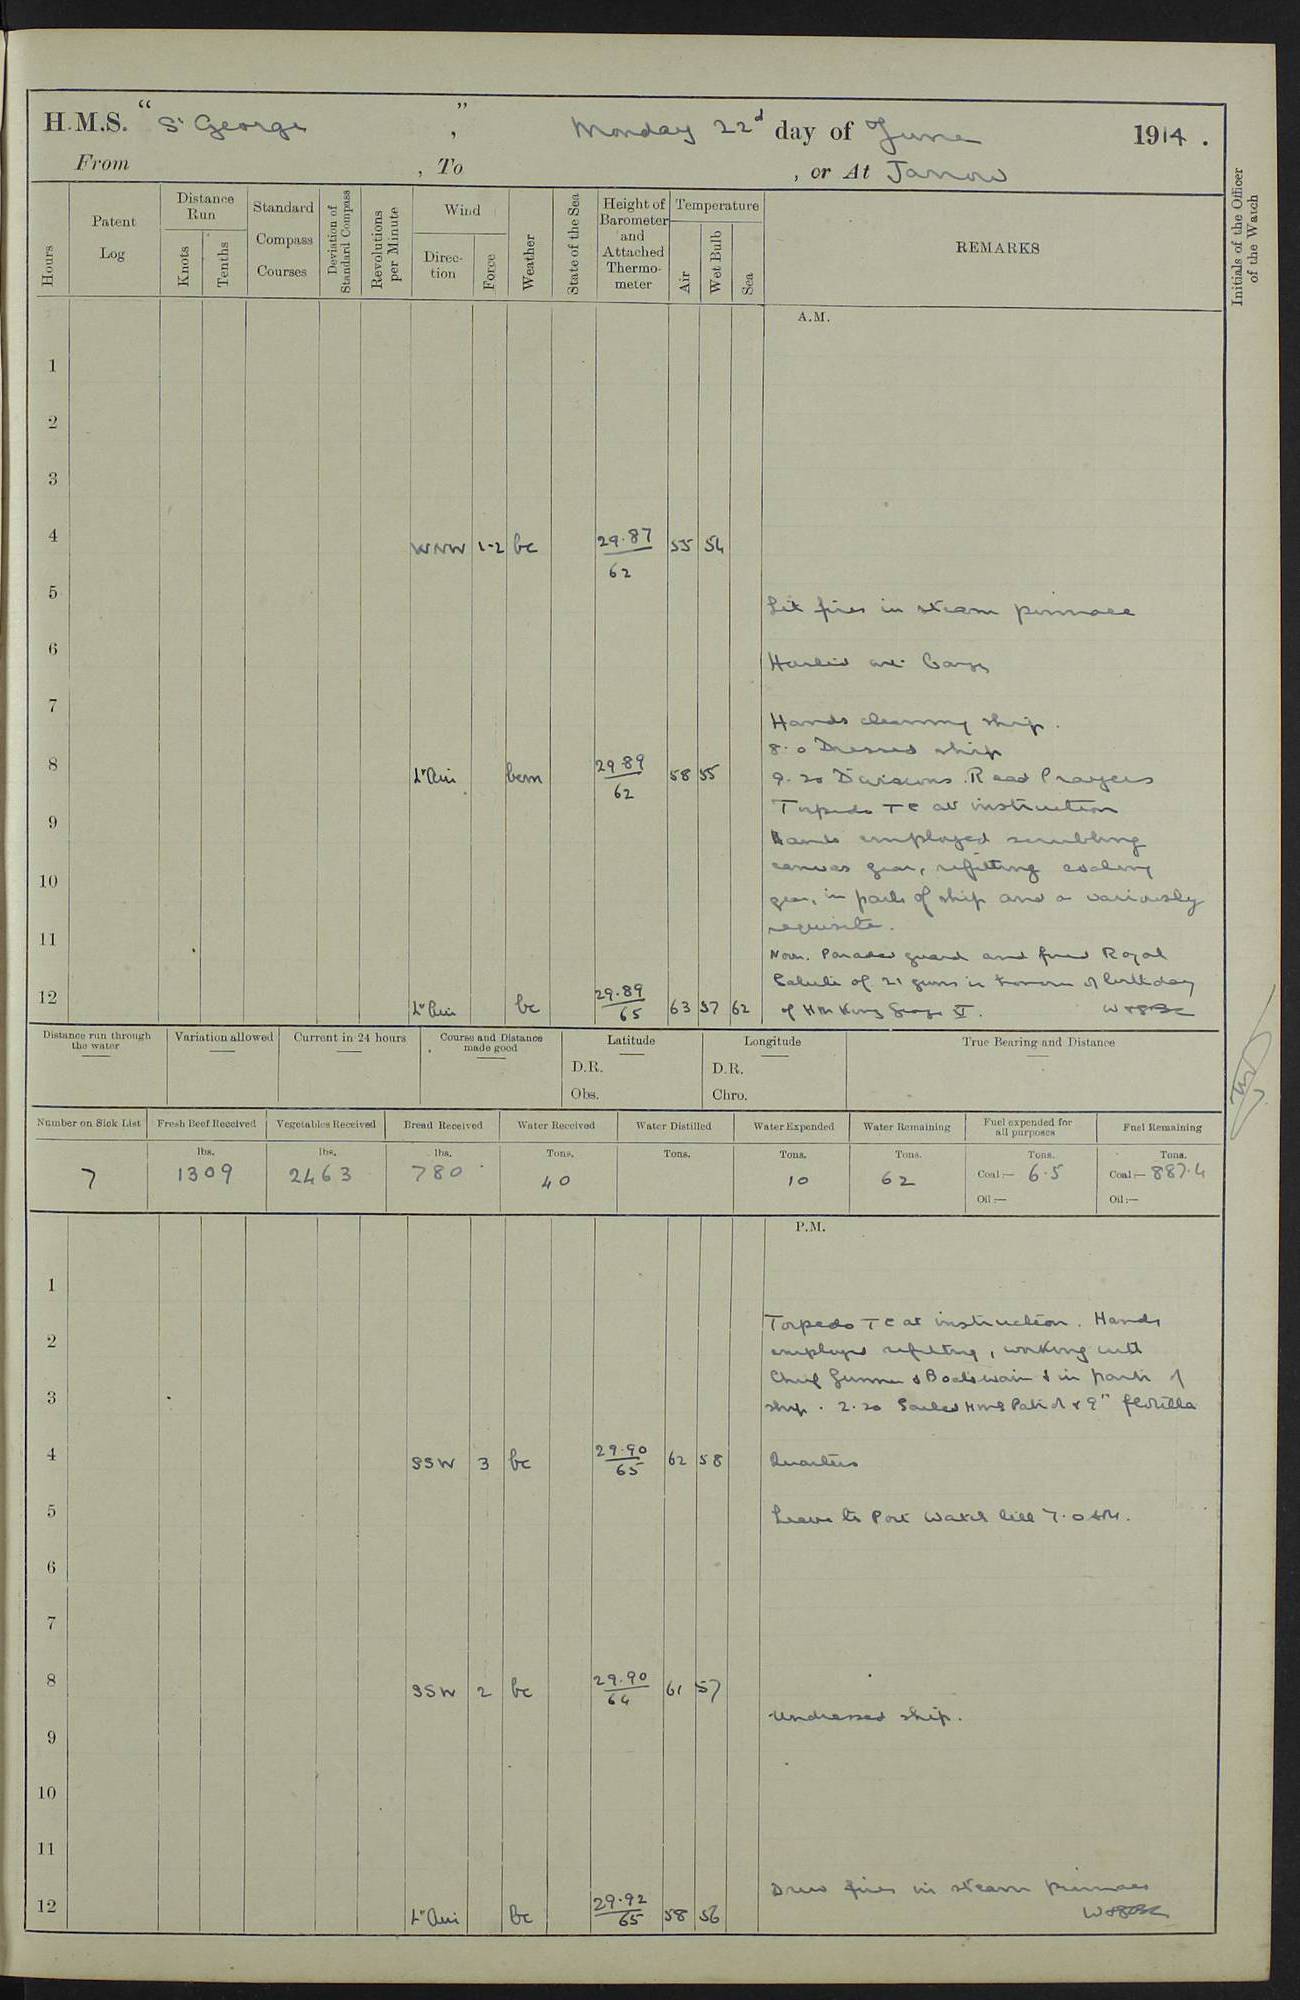 H.M.S. "St George", Monday 22d day of June 1914.
From , To , or At Jarrow
Hours
Patent Log
Distance Run
Knots
Tenths
Standard Compass Courses
Deviation of Standard Compass
Revolutions per Minute
Wind
Direction
Force
Weather
State of the Sea
Height of Barometer and Attached Thermometer
Temperature
Air
Wet Bulb
Sea
REMARKS
Initials of the Officer of the Watch
A.M.
1
2
3
4 WNW 1-2 bc 29.87 62 55 54
5
Lit fires in steam pinnace
6
7
Hands cleaning ship.
8.0 Dressed ship
8 Lt Airs bcm 29 89 62 58 55
9.20 Divisions. Read Prayers
Torpedo TC at instruction
9
Hands employed scrubbing
canvas gear, refitting coaling
10
gear, in parts of ship and as variously
requisite.
11
Noon. Paraded guard and fired Royal
Salute of 21 guns in honour of birthday
12 Lt Airs bc 29.89 65 63 57 62
of HM King George V.
Distance run through the water
Variation allowed
Current in 24 hours
Course and Distance made good
Latitude
D.R.
Obs.
Longitude
D.R.
Chro.
True Bearing and Distance
Number on Sick List
Fresh Beef Received
Vegetables Received
Bread Received
Water Received
Water Distilled
Water Expended
Water Remaining
Fuel expended for all purposes
Fuel Remaining
7
lbs. 1309
lbs. 2463
lbs. 780
Tons. 40
Tons.
Tons. 10
Tons. 62
Tons. Coal:— 6.5
Oil:—
Tons. Coal:— 887.4
Oil:—
P.M.
1
Torpedo TC at instruction. Hands
2
employed refitting, working with
Chief Gunner & Boatswain & in parts of
3
ship. 2.20 Sailed HMS Patrol & 9th flotilla
4 SSW 3 bc 29.90 65 62 58 Quarters
5
Leave to Port Watch till 7.0 AM.
6
7
8 SSW 2 bc 29.90 64 61 57
Undressed ship.
9
10
11
Drew fires in steam pinnace
12 Lt Airs bc 29.92 65 58 56